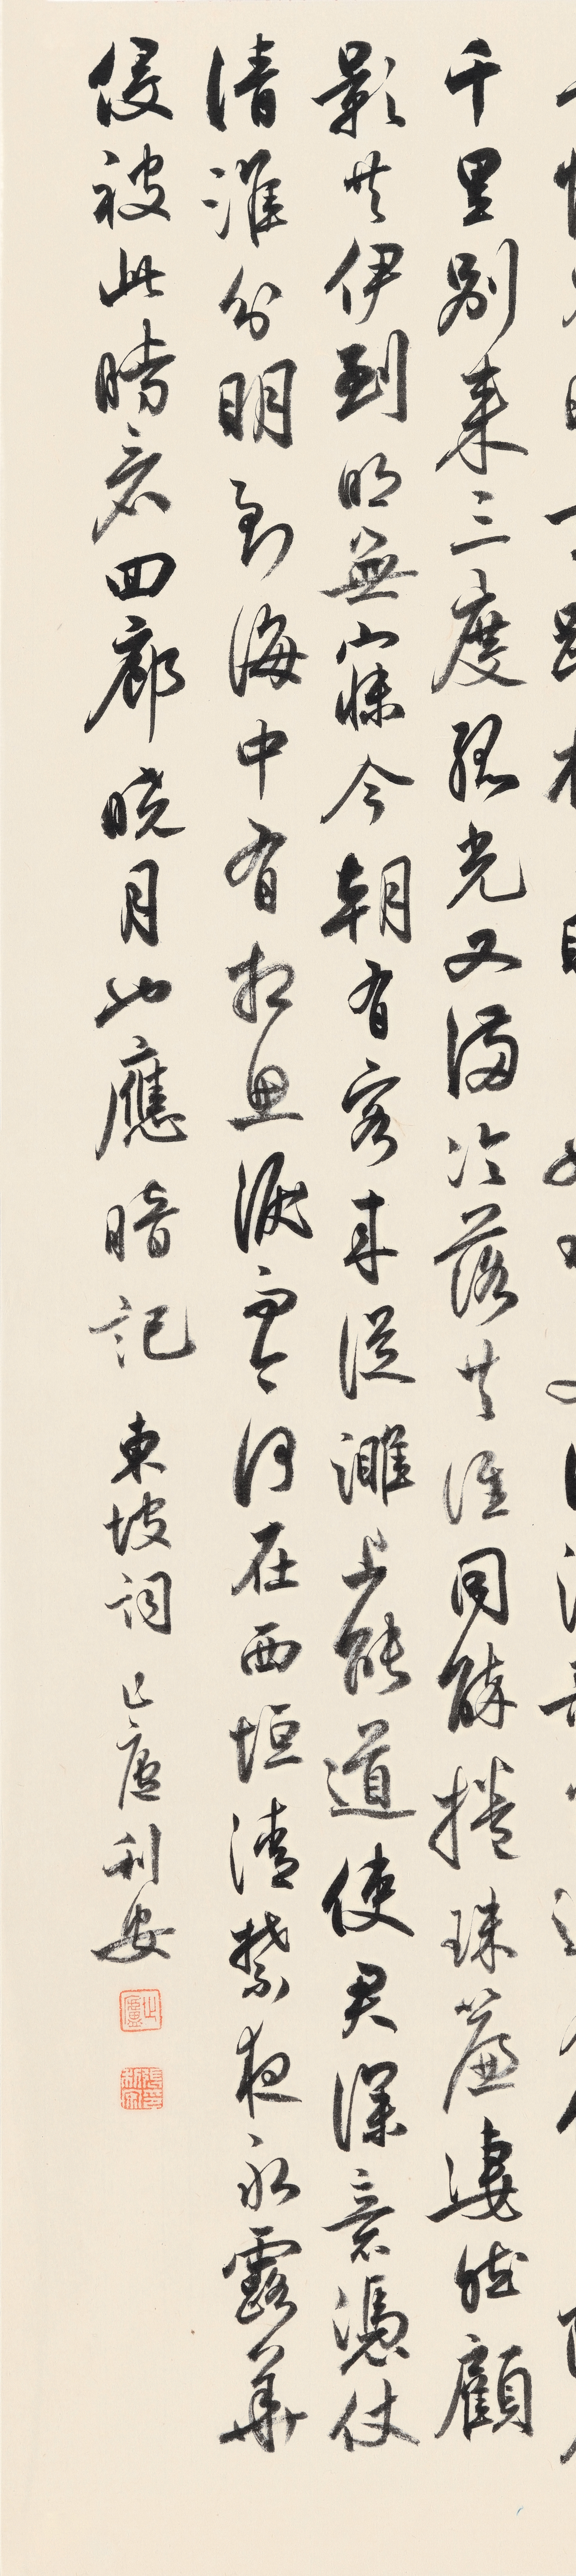 千里別來三度孤光又滿冷落共誰同醉捲珠簾淒然顧
影共伊到明無寐今朝有客來從濉上能道使君深意憑仗
清淮分明到海中有相思淚而今何在西垣清禁夜永露華
侵被此時看回廊曉月也應暗記 東坡詞 止廬利安
止廬